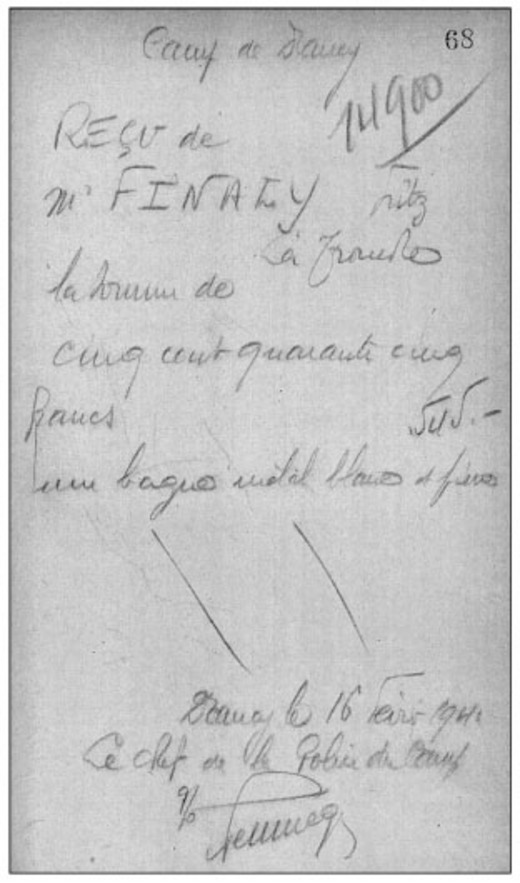 Camp de Drancy
68
14900
REÇU de
Mr FINALY Fritz
La Tronche
la somme de
cinq cent quarante cinq
francs 545.-
une bague métal blanc et pierre
Drancy le 16 1944
Le chef de la Police du Camp